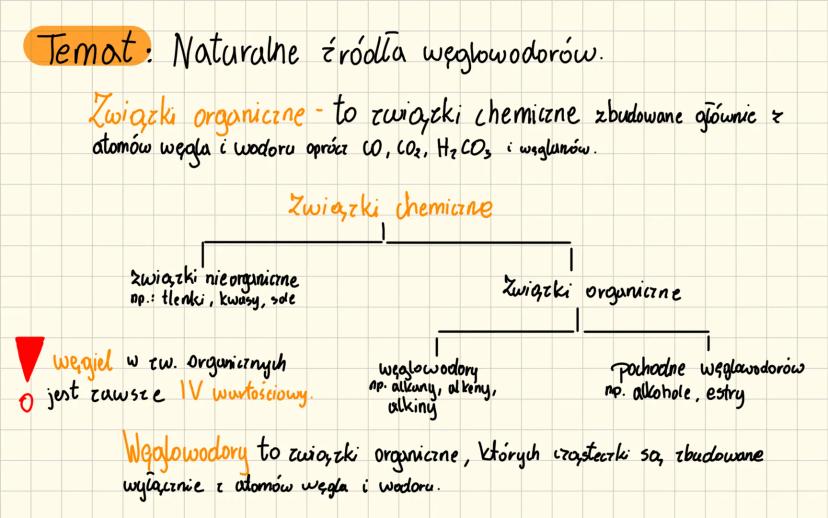 Temat: Naturalne źródła węglowodorów.
Związki organiczne - to związki chemiczne zbudowane głównie z
atomów węgla i wodoru oprócz CO, CO₂, H₂CO₃ i węglanów.
Związki chemiczne
związki nieorganiczne
np.: tlenki, kwasy, sole
Związki organiczne
węglowodory
np. alkany, alkeny,
alkiny
pochodne węglowodorów
np. alkohole, estry
węgiel w zw. organicznych
jest zawsze IV wartościowy.
Węglowodory to związki organiczne, których cząsteczki są zbudowane
wyłącznie z atomów węgla i wodoru.